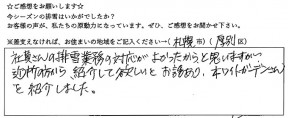 ☆ご感想をお願いします☆
今シーズンの排雪はいかがでしたか？
お客様の声が、私たちの原動力になっています。ぜひ、ご感想をお聞かせ下さい。
※差支えなければ、お住まいの地域をご記入ください→（札幌市）（厚別区）
社員さんの排雪業務の対応がよかったからと思いますが、
近所の方から紹介して欲しいとお話あり、本ワイドガーデンさん
を紹介しました。